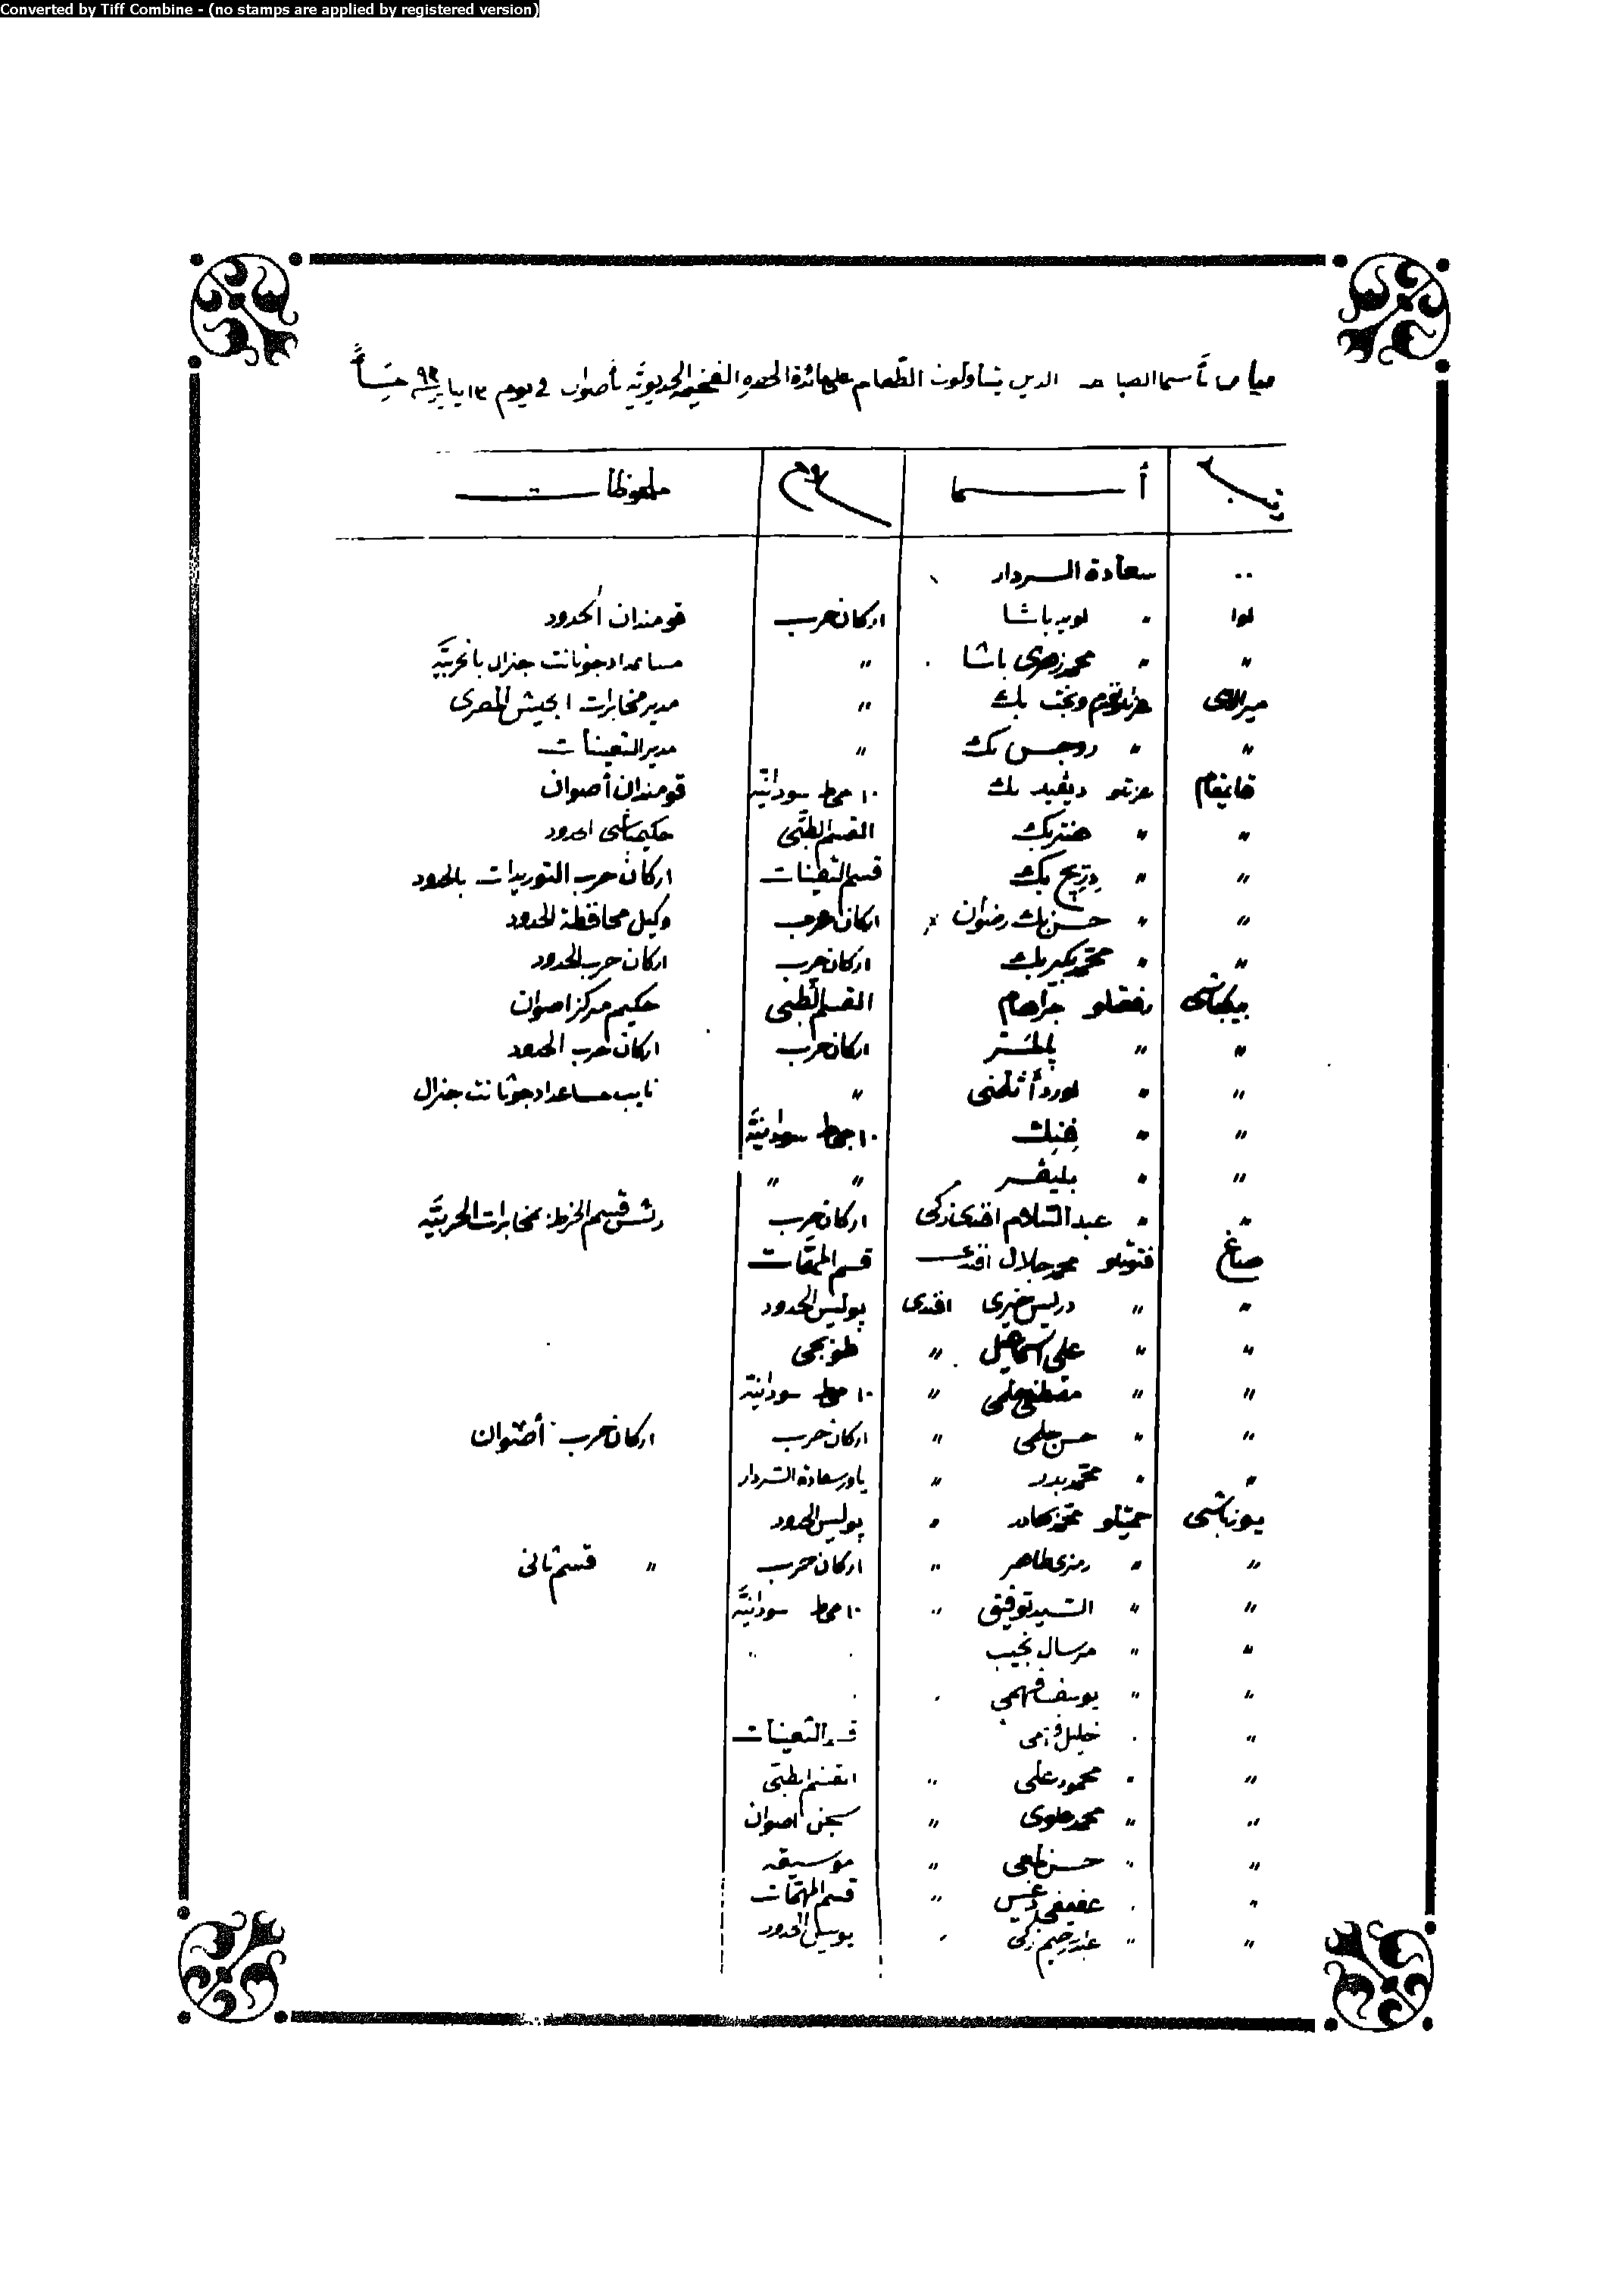 Converted by Tiff Combine - (no stamps are applied by registered version)
بيان أسما الضباط الذين يتناولون الطعام على مائدة الحضرة الفخيمة الخديوية بأصوان في يوم ١٣ يناير سنة ٩٤ مساءً
رتب أسما ملحوظات
.. سعادة السردار
لوا " باشا اركانحرب قومندان الحدود
" " محمد زهرى باشا " مساعد ادجوتانت جنرال بالحربية
ميرالاى ونجت بك " مدير مخابرات الجيش المصرى
" " روجرس بك " مدير التعيينات
قايمقام عزتلو ديفيد بك ١٠ جى سودانية قومندان أصوان
" " هنتر بك القسم الطبى حكيمباشى الحدود
" " بك قسم التعيينات اركان حرب التوريدات بالحدود
" " حسن بك رضوان اركانحرب وكيل محافظة الحدود
" " بك اركان حرب اركان حرب الحدود
بيكباشى رفعتلو جراهام القسم الطبى حكيم مركز اصوان
" " اركانحرب اركان حرب الحدود
" " لورد أثلمنى " نايب مساعد ادجوتانت جنرال
" " فنك ١٠ جى سودانية
" " " "
" " عبد السلام افندى زكى اركانحرب رئيس قسم الخرط بمخابرات الحربية
صاغ فتوتلو محمد جلال افندى قسم المهمات
" " خيرى افندى بوليس الحدود
" " على اسماعيل " طوبجى
" " مصطفى حلمى " ١٠ جى سودانية
" " حسن حلمى " اركانحرب اركان حرب أصوان
" " محمد بدر " ياور سعادة السردار
يوزباشى حميتلو محمد " بوليس الحدود
" " رمزى طاهر " اركان حرب " قسم ثانى
" " السيد توفيق " ١٠ جى سودانية
" " مرسال نجيب " "
" " يوسف فهمى "
" " خليل قسم التعيينات
" " محمود على " القسم الطبى
" " محمد علوى " سجن اصوان
" " حسن " موسيقه
" " عفيفى " قسم المهمات
" " عبد الرحيم زكى " بوليس الحدود